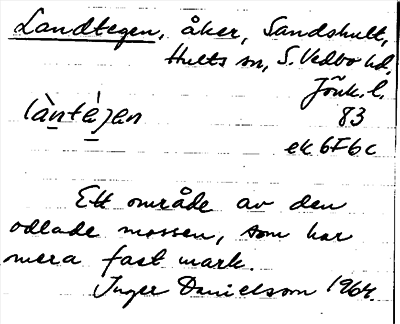 Landtegen, åker, Sandshult,
Hults sn, S. Vedbo hd,
Jönk. l.
làntéjen 83
ek 6F6c
Ett område av den
odlade mossen, som har
mera fast mark.
Inger Danielsson 1964.